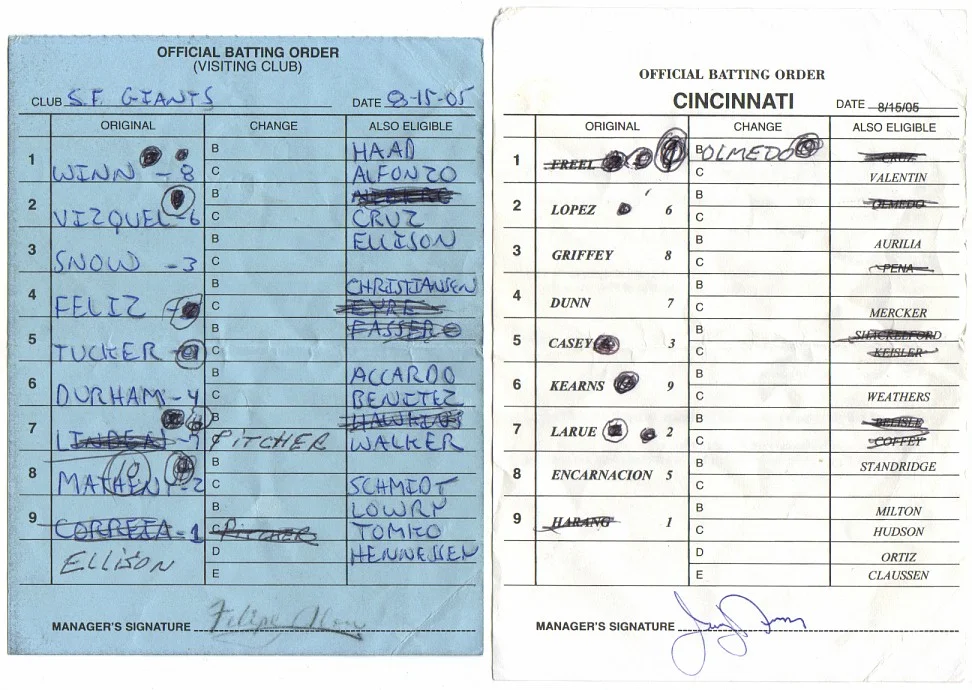 OFFICIAL BATTING ORDER
(VISITING CLUB)
CLUB S.F. GIANTS DATE 8-15-05
ORIGINAL CHANGE ALSO ELIGIBLE
1 WINN - 8 B C HAAD
ALFONZO
2 VIZQUEL - 6 B C
CRUZ
3 SNOW - 3 B C ELLISON
4 FELIZ B C CHRISTIANSEN
EYRE
5 TUCKER - 9 B C FASSERO
6 DURHAM - 4 B C ACCARDO
BENITEZ
7 LINDEN B C PITCHER HAWKINS
WALKER
8 MATHENY - 2 10 B C
SCHMIDT
9 CORREIA - 1 B C PITCHER LOWRY
TOMKO
ELLISON D E HENNESSEY
MANAGER'S SIGNATURE Felipe Alou
OFFICIAL BATTING ORDER
CINCINNATI DATE 8/15/05
ORIGINAL CHANGE ALSO ELIGIBLE
1 FREEL B OLMEDO C CRUZ
VALENTIN
2 LOPEZ 6 B C OLMEDO
3 GRIFFEY 8 B C AURILIA
PENA
4 DUNN 7 B C
MERCKER
5 CASEY 3 B C SHACKELFORD
KEISLER
6 KEARNS 9 B C
WEATHERS
7 LARUE 2 B C BELISLE
COFFEY
8 ENCARNACION 5 B C STANDRIDGE
9 HARANG 1 B C MILTON
HUDSON
D ORTIZ
E CLAUSSEN
MANAGER'S SIGNATURE